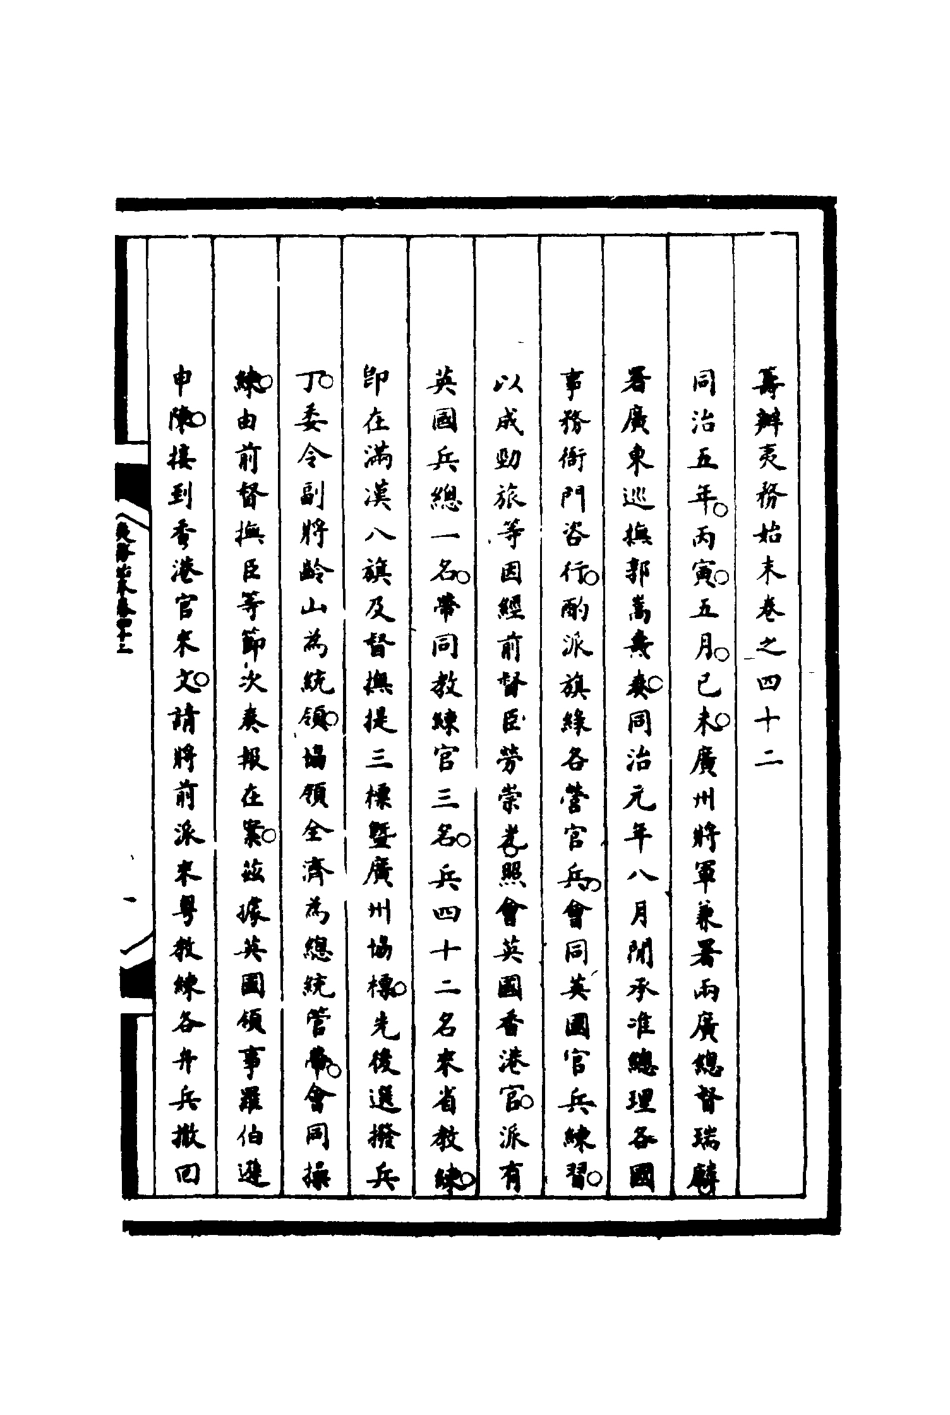 籌辦夷務始末卷之四十二
同治五年。丙寅。五月。己未。廣州將軍兼署兩廣總督瑞麟。
署廣東巡撫郭嵩燾奏。同治元年八月間承准總理各國
事務衙門咨行。酌派旗綠各營官兵。會同英國官兵練習。
以成勁旅等因經前督臣勞崇光。照會英國香港官。派有
英國兵總一名。帶同教練官三名。兵四十二名來省教練。
即在滿漢八旗及督撫提三標暨廣州協標。先後選撥兵
丁。委令副將齡山為統領。協領全濟為總統管帶。會同操
練。由前督撫臣等節次奏報在案。茲據英國領事羅伯遜
申陳。接到香港官來文。請將前派來粵教練各弁兵撤回
夷務始末卷四十二
一